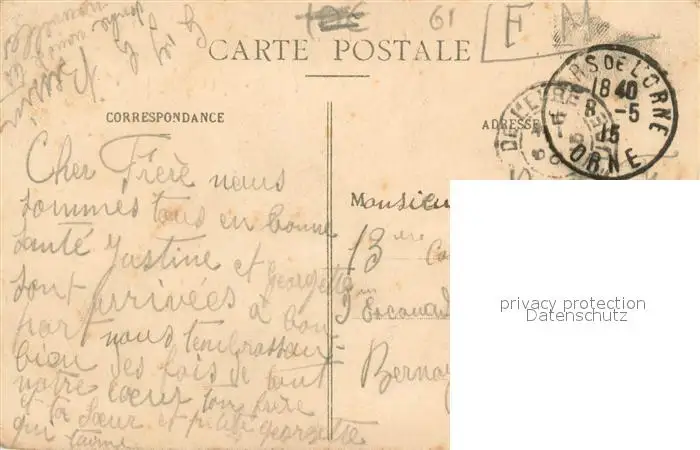 106 61 F M
CARTE POSTALE
CORRESPONDANCE
ADRESSE
RS DE L'ORNE
18 40
8 -5
15
ORNE
Cher Frère nous
sommes tous en bonne
santé Justine et Georgette
sont arrivées à bon
port nous t'embrassons
bien des fois de tout
notre cœur ton frère
et ta sœur et petite Georgette
qui t'aime
Monsieur
13 me Co
9 me Escouad
Bernay
privacy protection
Datenschutz